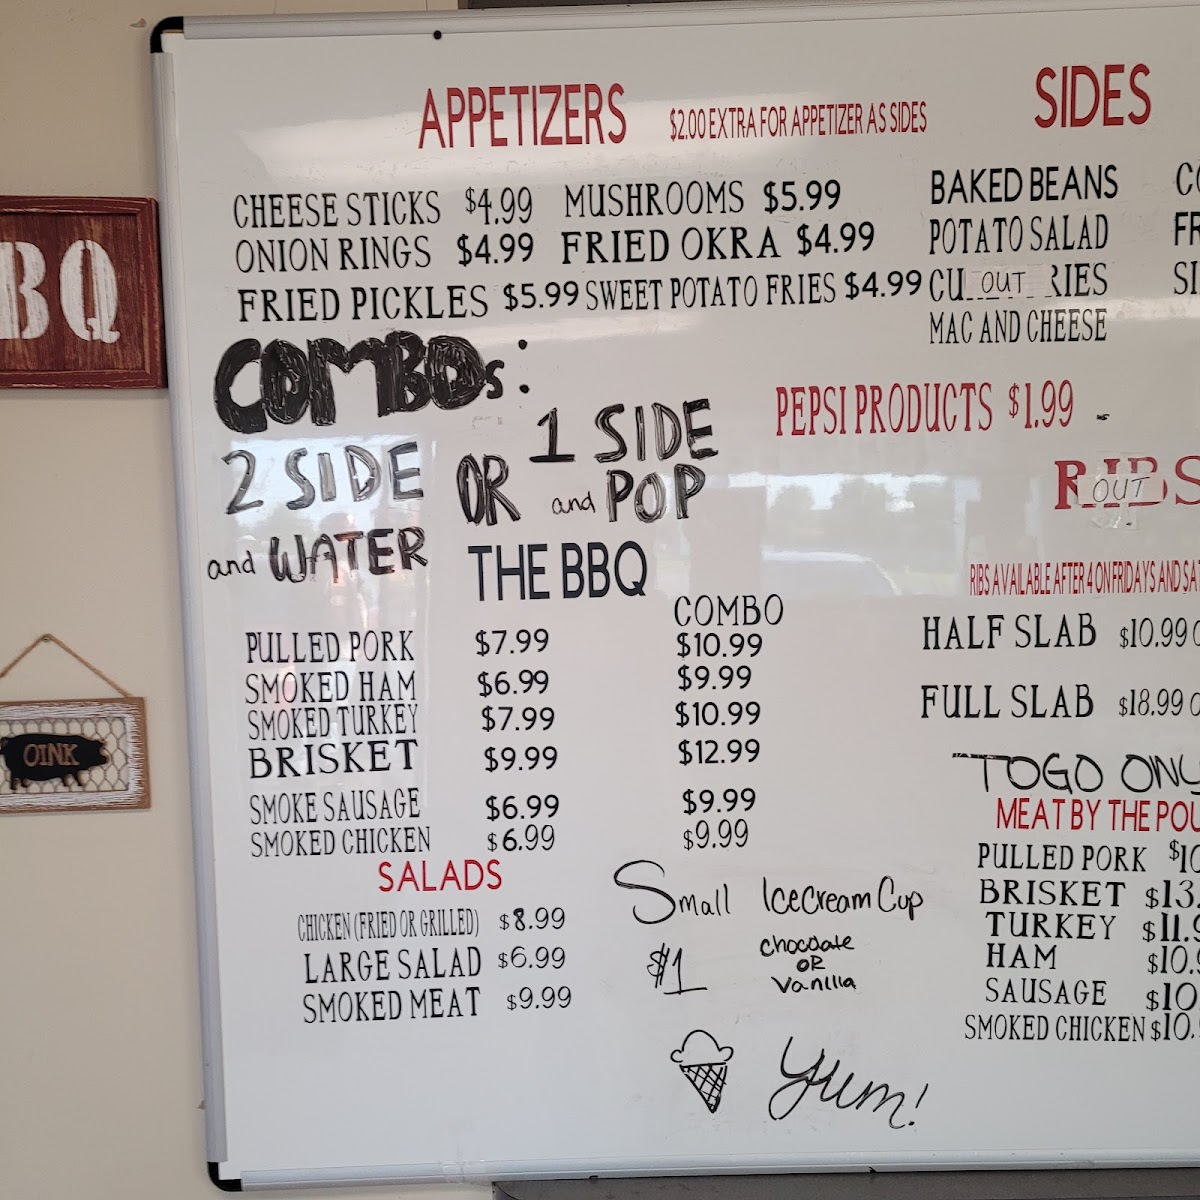 BQ
OINK
APPETIZERS
$2.00 EXTRA FOR APPETIZER AS SIDES
CHEESE STICKS $4.99 MUSHROOMS $5.99
ONION RINGS $4.99 FRIED OKRA $4.99
FRIED PICKLES $5.99 SWEET POTATO FRIES $4.99
SIDES
BAKED BEANS CO
POTATO SALAD FR
CU OUT RIES SI
MAC AND CHEESE
PEPSI PRODUCTS $1.99
COMBOs:
2 SIDE and WATER
OR
1 SIDE and POP
THE BBQ
COMBO
PULLED PORK $7.99 $10.99
SMOKED HAM $6.99 $9.99
SMOKED TURKEY $7.99 $10.99
BRISKET $9.99 $12.99
SMOKE SAUSAGE $6.99 $9.99
SMOKED CHICKEN $6.99 $9.99
SALADS
CHICKEN (FRIED OR GRILLED) $8.99
LARGE SALAD $6.99
SMOKED MEAT $9.99
RIBS
OUT
RIBS AVAILABLE AFTER 4 ON FRIDAYS AND SAT
HALF SLAB $10.99
FULL SLAB $18.99
TOGO ONLY
MEAT BY THE POU
PULLED PORK $10
BRISKET $13.
TURKEY $11.9
HAM $10.9
SAUSAGE $10.
SMOKED CHICKEN $10.
Small Ice Cream Cup
$1
Chocolate
OR
Vanilla
Yum!